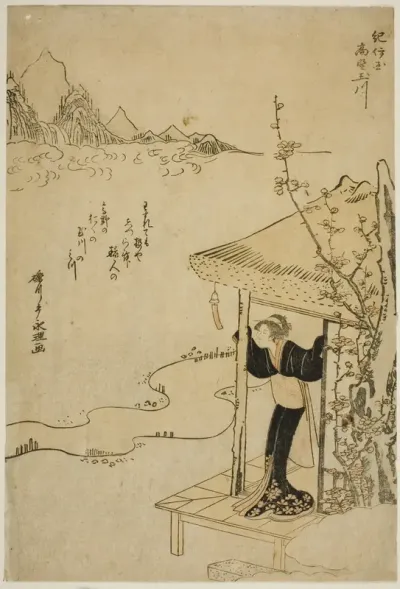 紀伊国
高野玉川
わすれても
汲や
しつらん
旅人の
高野の
おくの
玉川の
水
礫川亭永理画